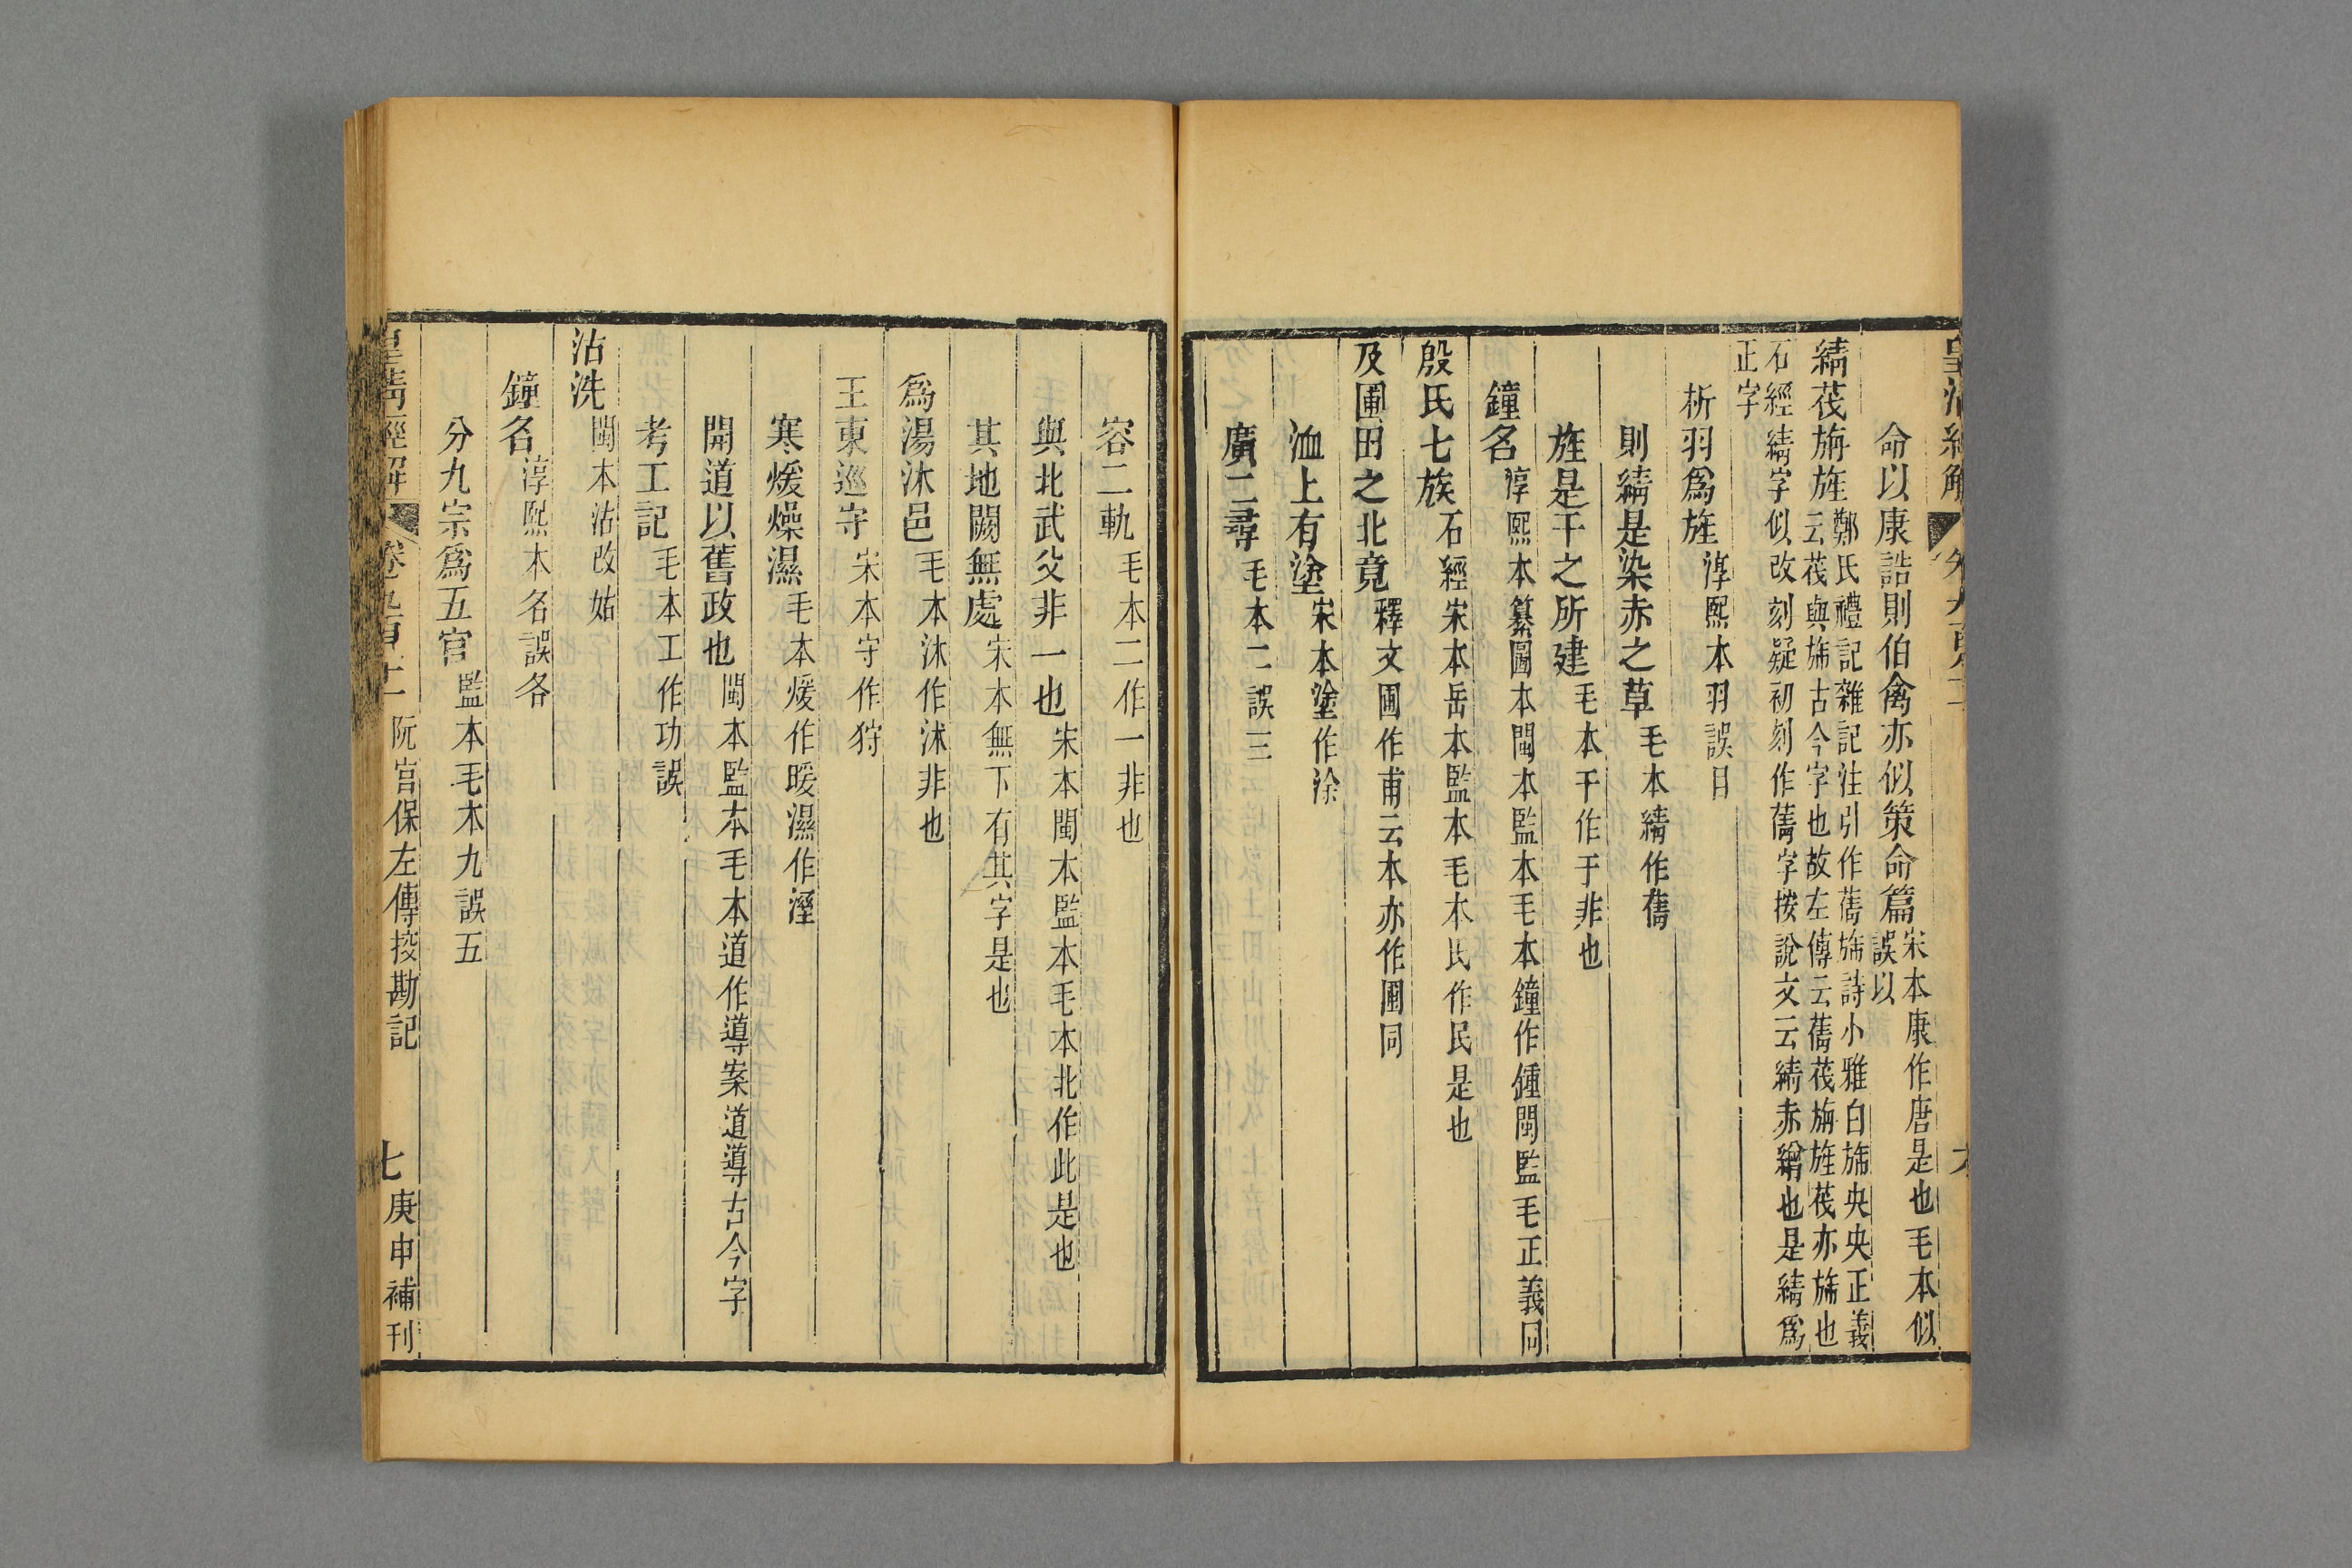 皇清經解
命以康誥則伯禽亦似策命篇宋本康作唐是也毛本似誤以
綪茷旃旌鄭氏禮記雜記注引作蒨旆詩小雅白旆央央正義云茷與旆古今字也故左傳云蒨茷旃旌茷亦旆也
石經綪字似改刻疑初刻作蒨字按說文云綪赤繒也是綪爲正字
析羽爲旌淳熙本羽誤目
則綪是染赤之草毛本綪作蒨
旌是干之所建毛本干作于非也
鐘名淳熙本纂圖本閩本監本毛本鐘作鍾閩監毛正義同
殷氏七族石經宋本岳本監本毛本氏作民是也
及圃田之北竟釋文圃作甫云本亦作圃同
洫上有塗宋本塗作涂
廣二尋毛本二誤三
容二軌毛本二作一非也
與北武父非一也宋本閩本監本毛本北作此是也
其地闕無處宋本無下有其字是也
爲湯沐邑毛本沐作沬非也
王東巡守宋本守作狩
寒煖燥濕毛本煖作暖濕作溼
開道以舊政也閩本監本毛本道作導案道導古今字
考工記毛本工作功誤
沽洗閩本沽改姑
鐘名淳熙本名誤各
分九宗爲五官監本毛本九誤五
皇清經解 卷 阮宮保左傳挍勘記 七 庚申補刊